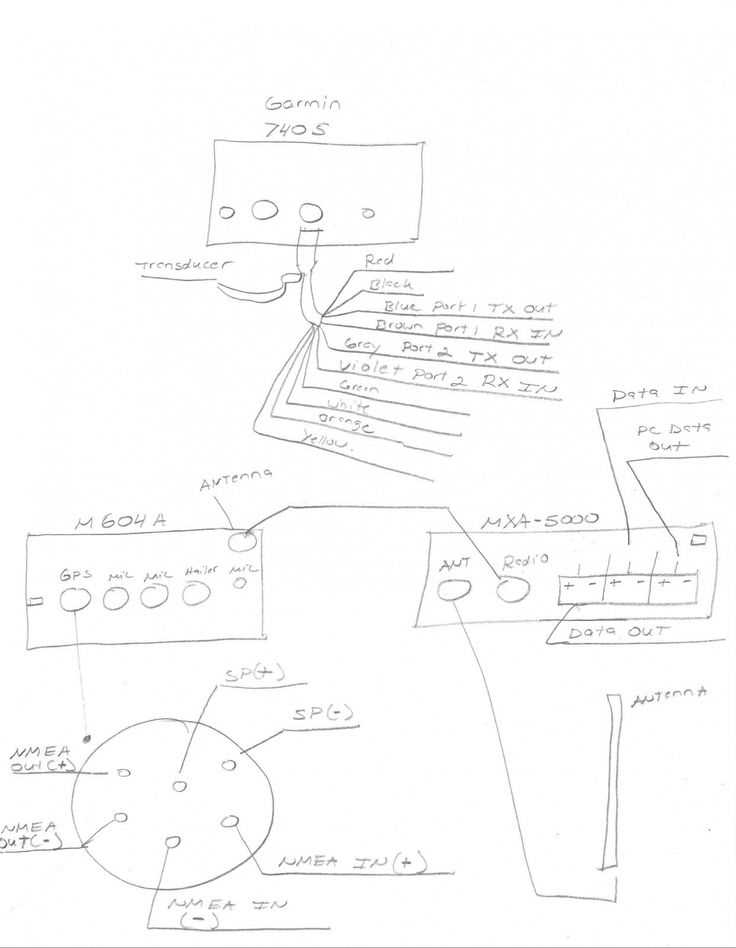 Garmin
740 S
Transducer
Red
Black
Blue Port 1 TX Out
Brown Port 1 RX IN
Gray Port 2 TX OUT
Violet Port 2 RX IN
Green
White
Orange
Yellow
Data IN
PC Data
Out
ANTenna
M604A
MXA-5000
GPS
Mic
Mic
Hailer
Mic
ANT
Radio
+ - + - + -
Data OUT
SP(+)
SP(-)
ANTENNA
NMEA
Out(+)
NMEA
OUT(-)
NMEA IN(+)
NMEA IN
(-)